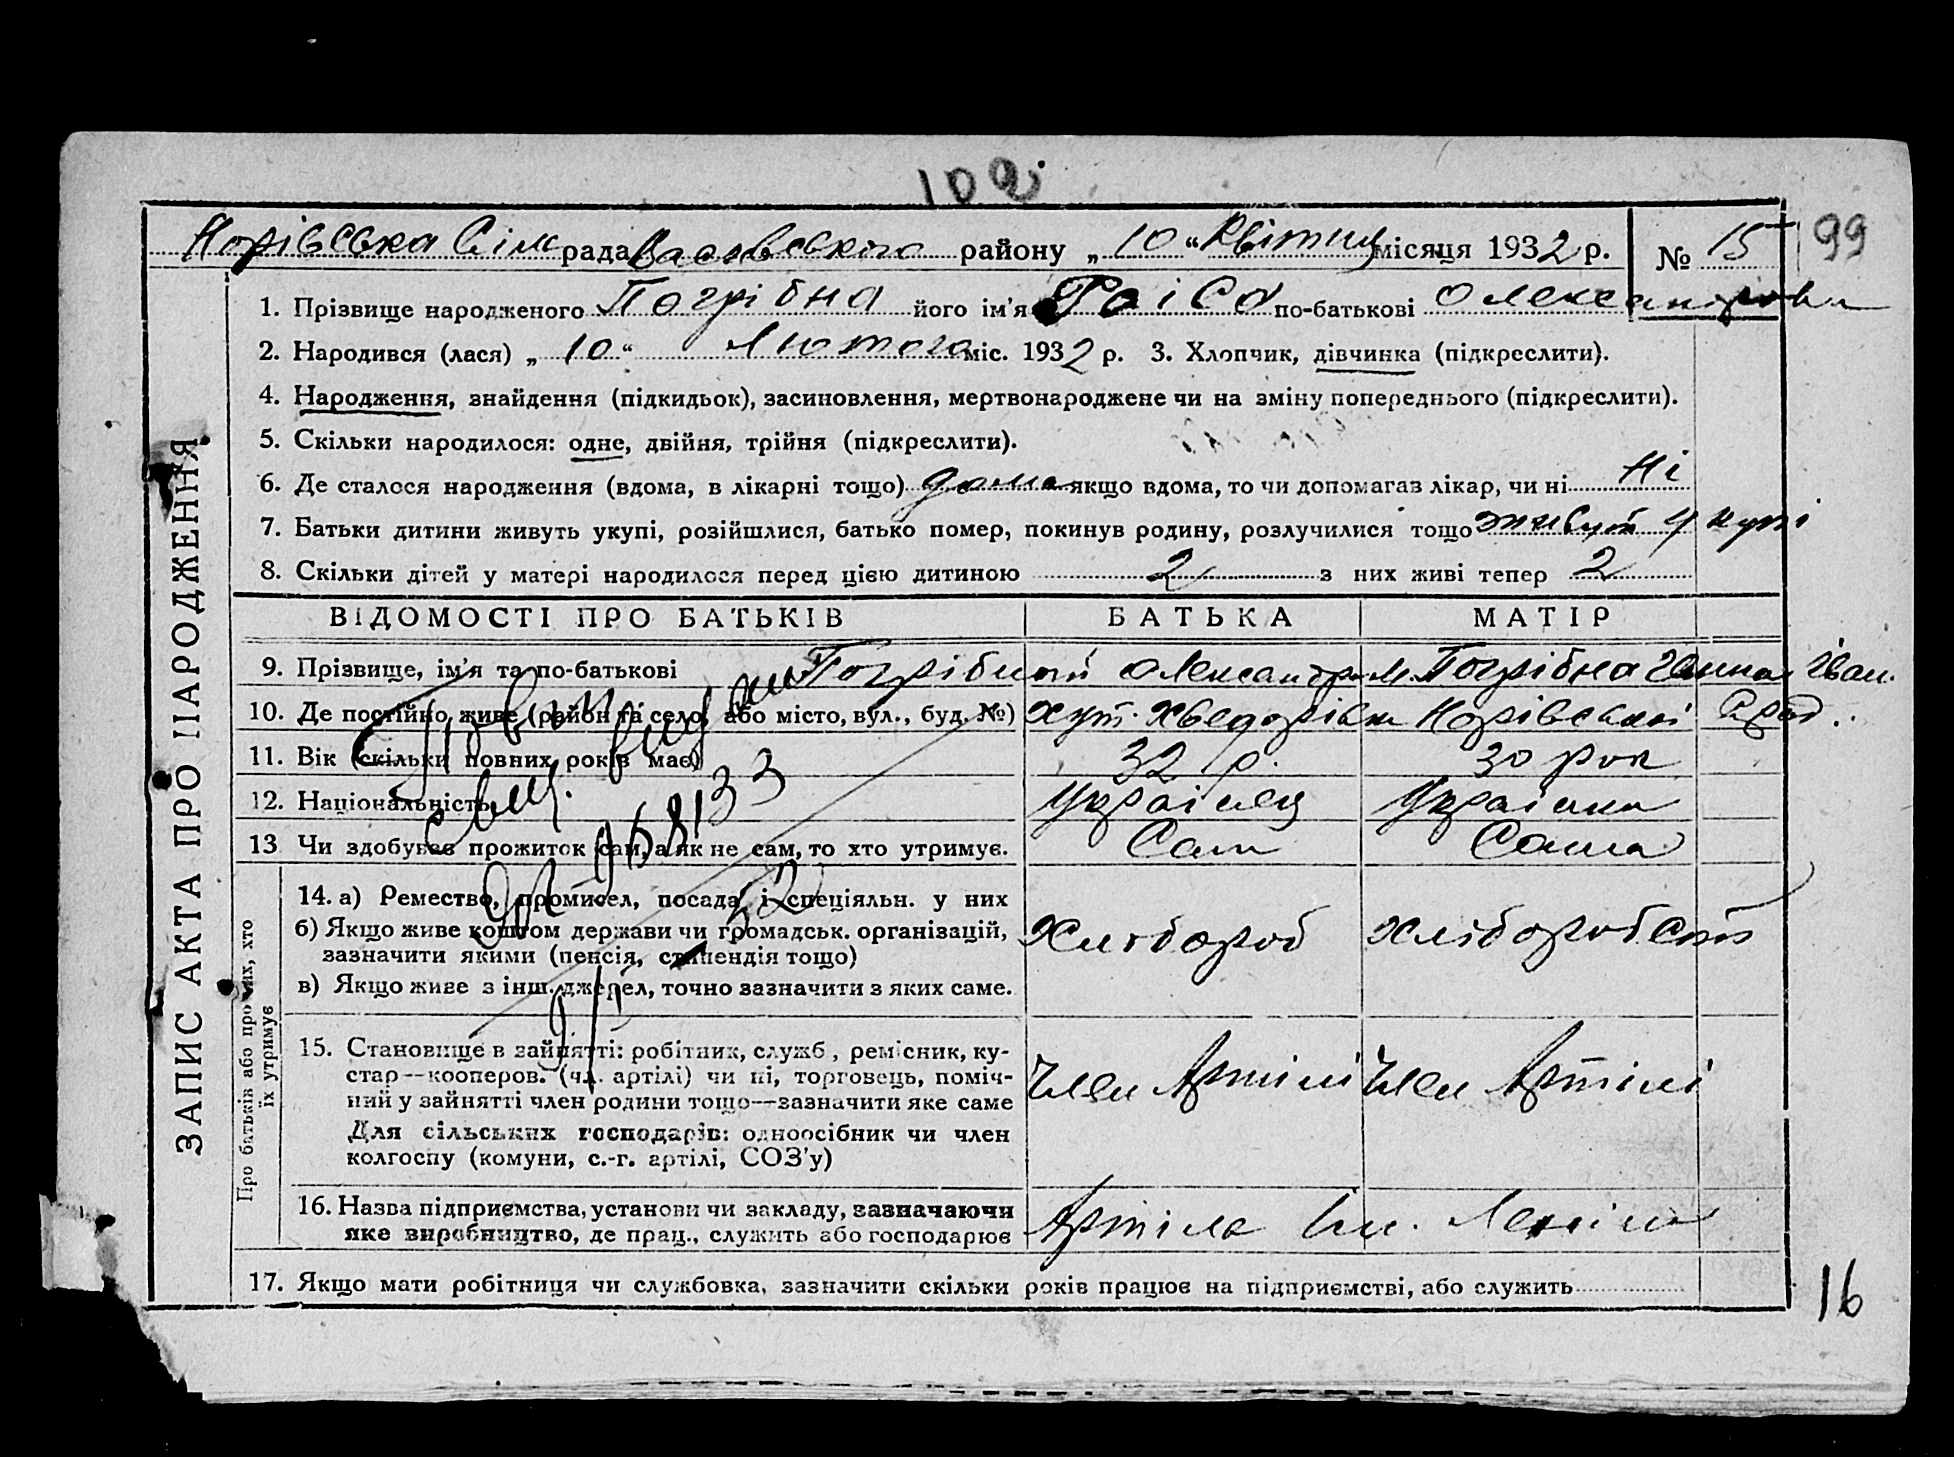 102
Норівська Сіл рада районy „ 10 “ Квітня місяця 1932 р. № 15
99
1. Прізвище народженого Погрібна його ім'я Раіса по-батькові Олександровн
2. Народився (лася) „ 10 “ Лютого міс. 1932 р. 3. Хлопчик, дівчинка (підкреслити).
4. Народження, знайдення (підкидьок), засиновлення, мертвонароджене чи на зміну попереднього (підкреслити).
5. Скільки народилося: одне, двійня, трійня (підкреслити).
6. Де сталося народження (вдома, в лікарні тощо) дома якщо вдома, то чи допомагав лікар, чи ні Ні
7. Батьки дитини живуть укупі, розійшлися, батько помер, покинув родину, розлучилися тощо живуть у купі
8. Скільки дітей у матері народилося перед цією дитиною 2 з них живі тепер 2
ВІДОМОСТІ ПРО БАТЬКІВ БАТЬКА МАТІР
9. Прізвище, ім'я та по-батькові Погрібний Олександр М. Погрібна Ганна Іван.
10. Де постійно живе (район та село, або місто, вул., буд. №) хут. Хведорівка Норівської С/рад..
11. Вік (скільки повних років має) 32 р. 30 рок
12. Національність Украінец Украінка
13 Чи здобуває прожиток сам, а як не сам, то хто утримує. Сам Сама
14. а) Ремество, промисел, посада і спеціяльн. у них
б) Якщо живе коштом держави чи громадськ. організацій, Хлібороб хліборобств
зазначити якими (пенсія, стипендія тощо)
в) Якщо живе з інш. джерел, точно зазначити з яких саме.
15. Становище в зайнятті: робітник, служб., ремісник, ку-
стар—кооперов. (чл. артілі) чи ні, торговець, поміч- Член Артілі Член Артілі
ний у зайнятті член родини тощо—зазначити яке саме
Для сільських господарів: одноосібник чи член
колгоспу (комуни, с.-г. артілі, СОЗ'у)
16. Назва підприємства, установи чи закладу, зазначаючи
яке виробництво, де прац., служить або господарює Артіль Ім. Леніна
17. Якщо мати робітниця чи службовка, зазначити скільки років працює на підприємстві, або служить
16
ЗАПИС АКТА ПРО НАРОДЖЕННЯ
Про батьків або про них, хто
їх утримує